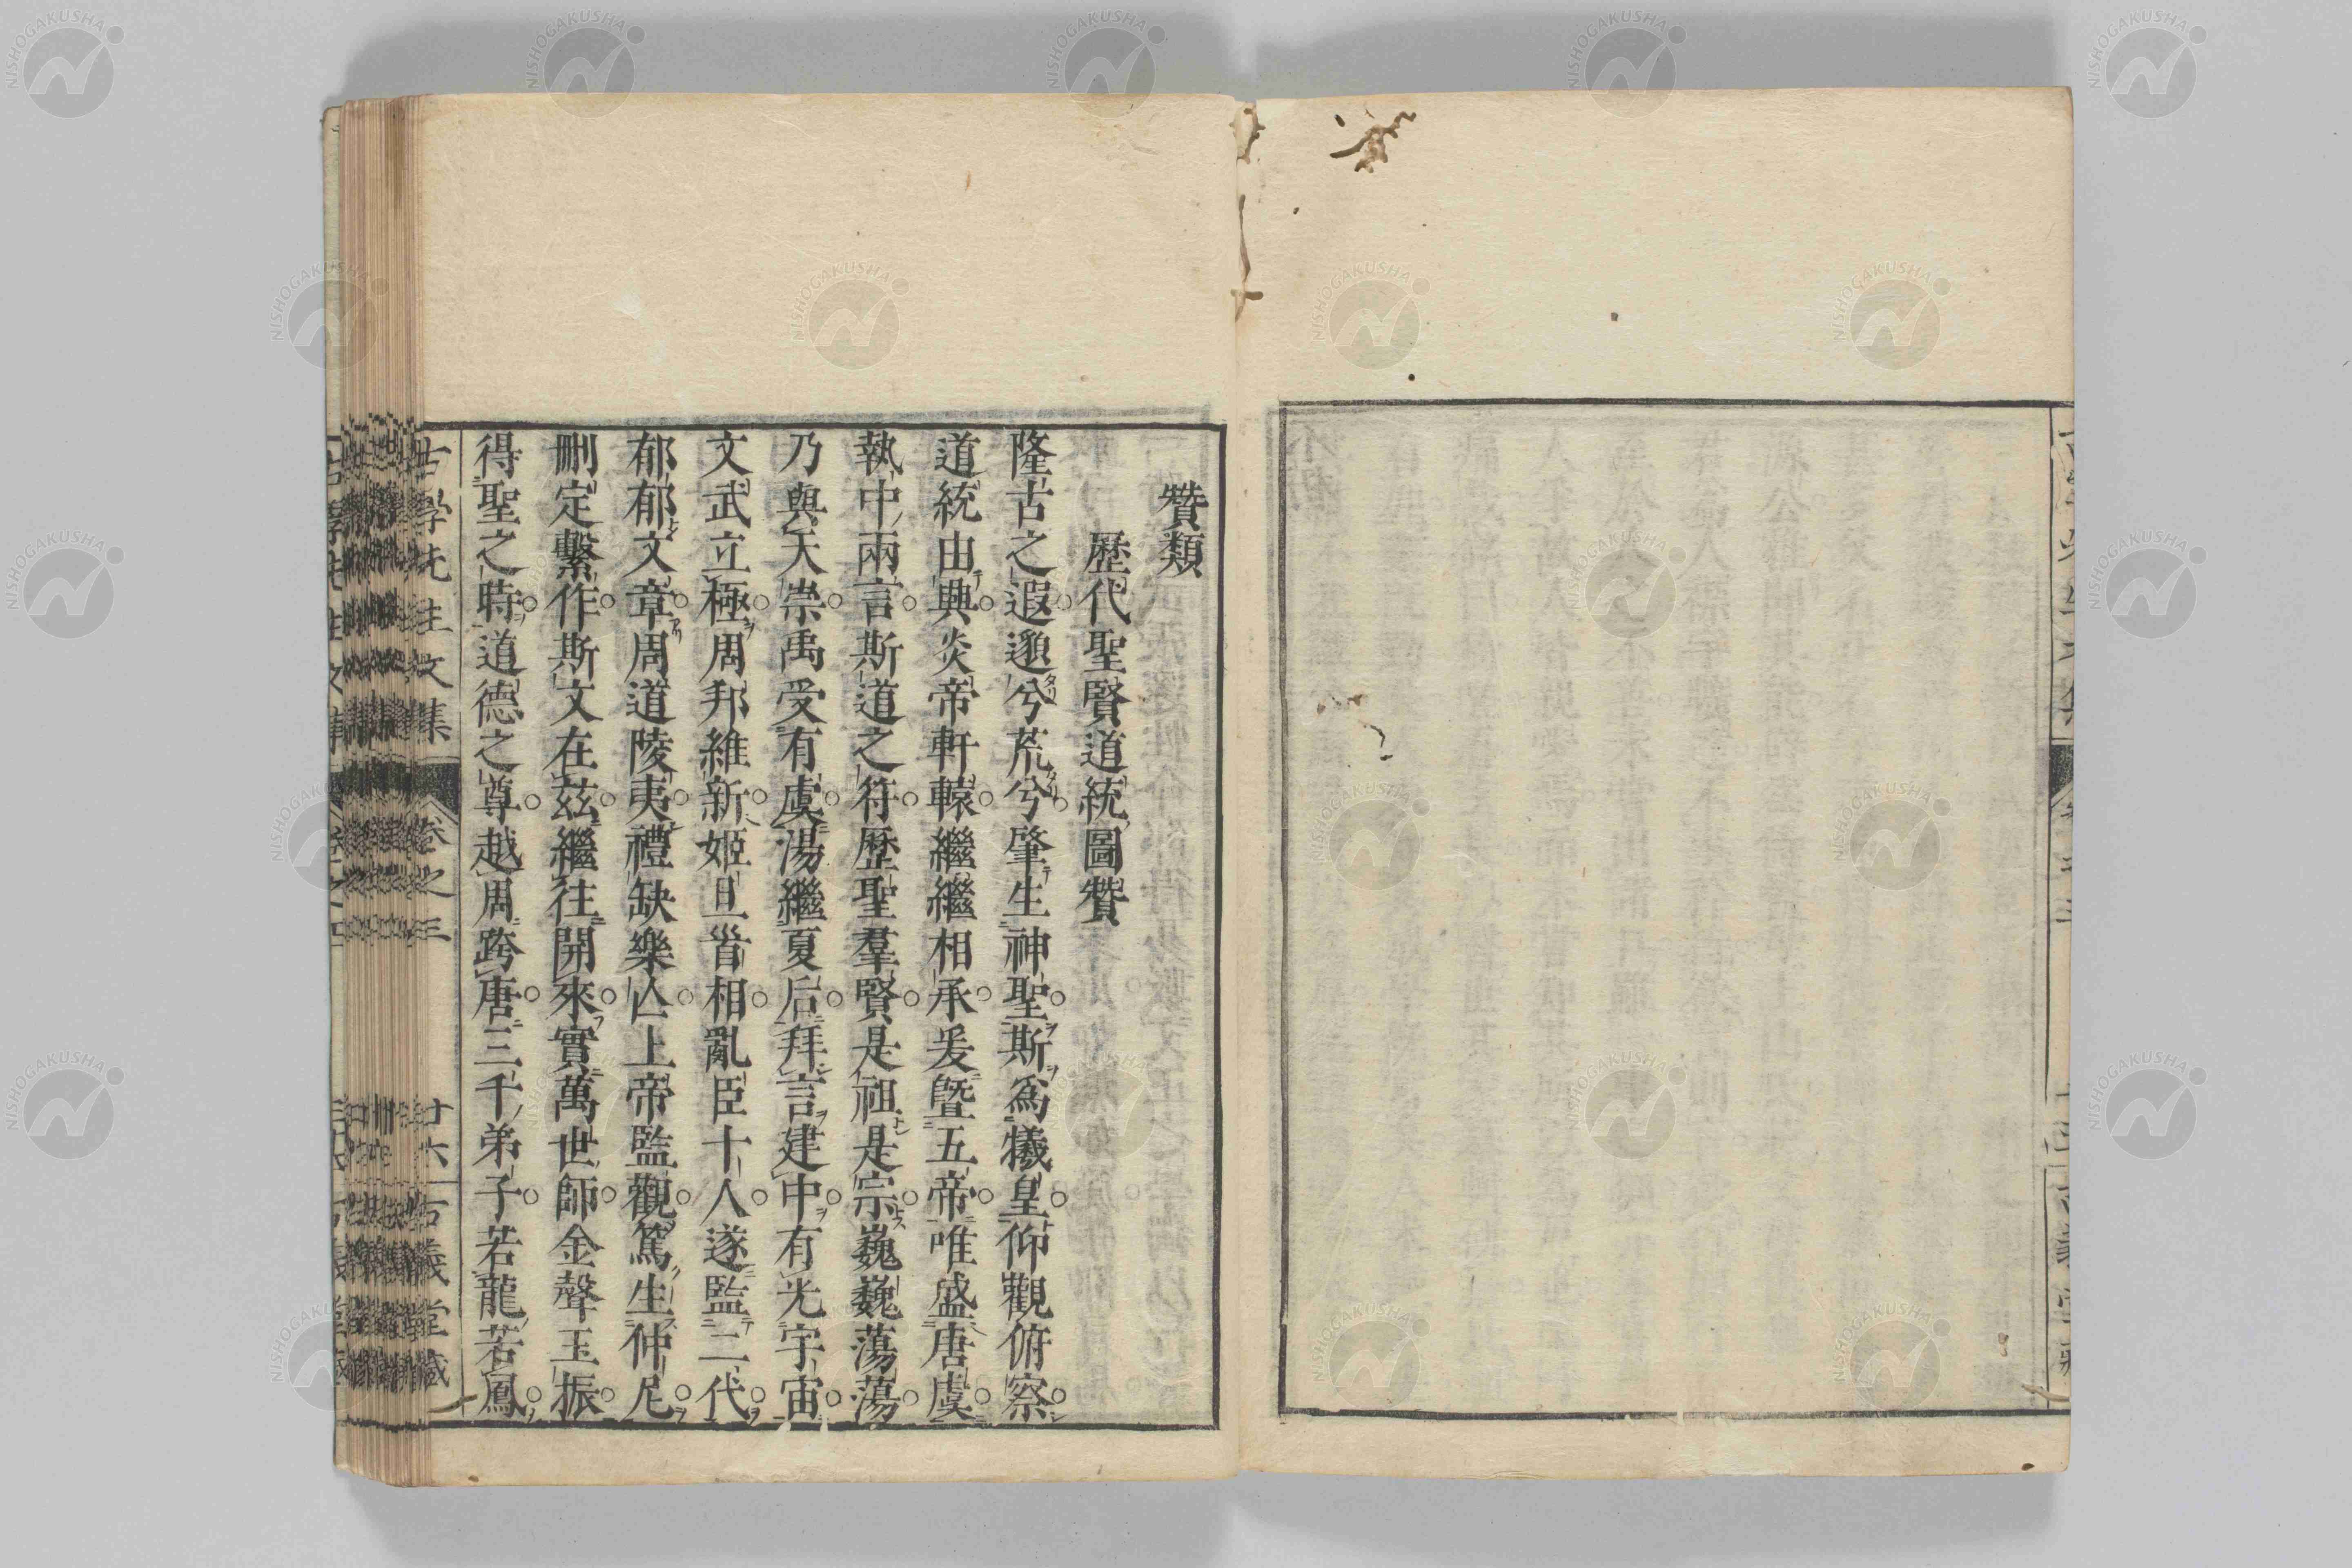 贊類
歷代聖賢道統圖贊
隆古之遐邈兮荒兮肇生神聖斯爲犧皇仰觀俯察
道統由興炎帝軒轅繼繼相承爰曁五帝唯盛唐虞
執中兩言斯道之符歷聖羣賢是祖是宗巍巍蕩蕩
乃與天崇禹受有虞湯繼夏后拜言建中有光宇宙
文武立極周邦維新姬旦胥相亂臣十人遂監二代
郁郁文章周道陵夷禮缺樂亾上帝監觀篤生仲尼
刪定繫作斯文在茲繼往開來實萬世師金聲玉振
得聖之時道德之尊越周跨唐三千弟子若龍若鳳
古學先生文集 卷之三 廿六 古義堂藏
NISHOGAKUSHA